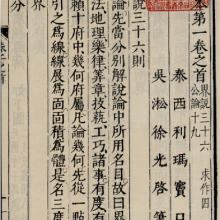 本第一卷之首 界說三十六 求作四
公論十九
泰西利瑪竇口
吳淞徐光啓筆
說三十六則
論先當分別解說論中所用名目故曰界
法地理樂律筭章技藝工巧諸事有度有
賴十府中幾何府屬凡論幾何先從一點
引之為線線展為面面積為體是名三度
界